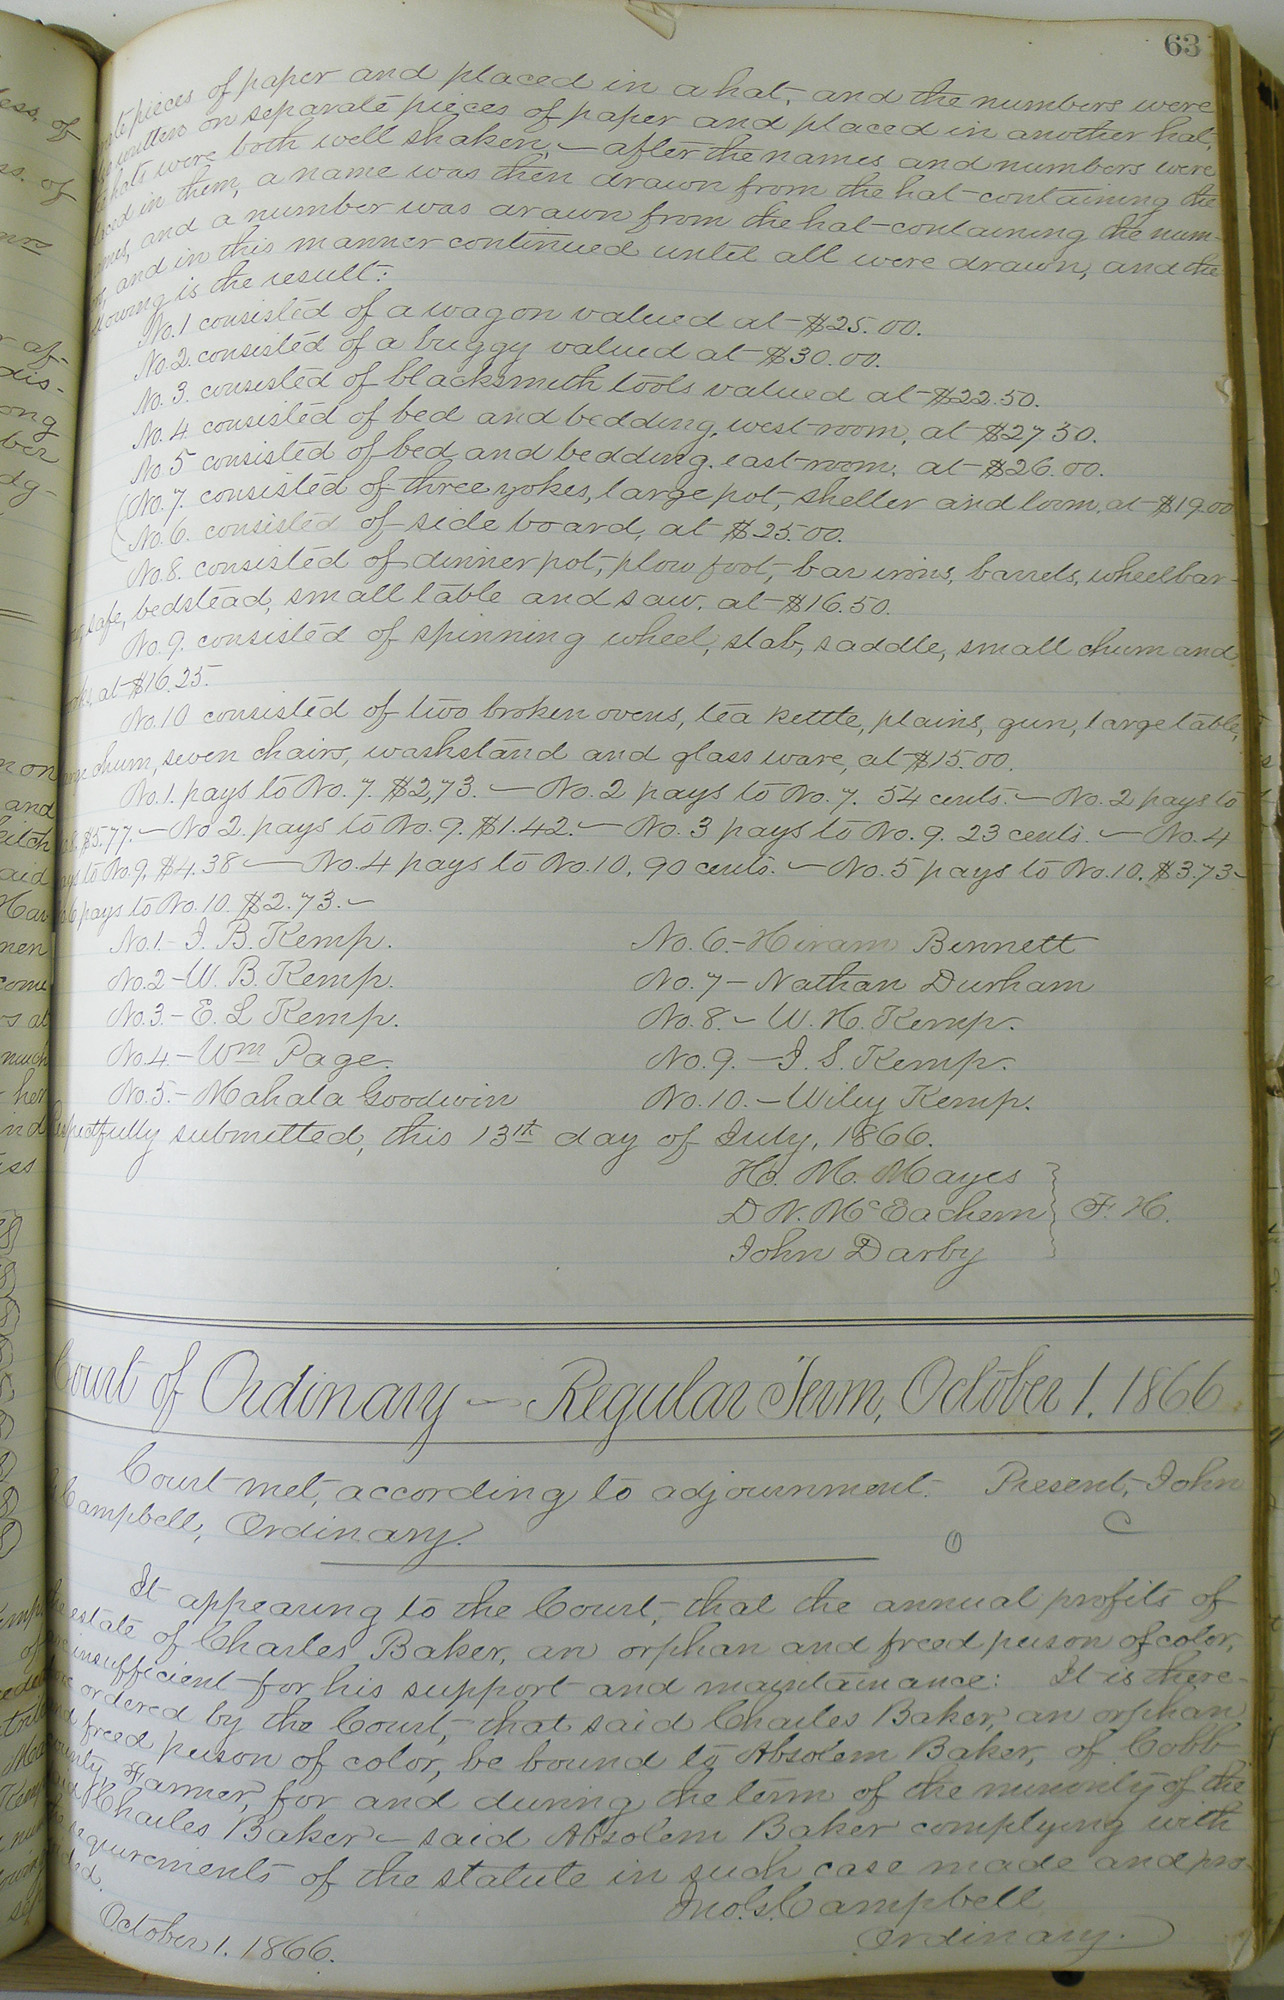 63
pieces of paper and placed in a hat, and the numbers were
written on separate pieces of paper and placed in another hat,
hats were both well shaken, — after the names and numbers were
in them, a name was then drawn from the hat containing the
and a number was drawn from the hat containing the num-
and in this manner continued until all were drawn, and the
is the result:
No. 1 consisted of a wagon valued at $25.00.
No. 2. consisted of a buggy valued at $30.00.
No. 3. consisted of blacksmith tools valued at $22.50.
No. 4 consisted of bed and bedding, west room, at $27.50.
No. 5 consisted of bed and bedding, east room, at $26.00.
No. 7. consisted of three yokes, large pot, sheller and loom, at $19.00
No. 6. consisted of side board, at $25.00.
No. 8. consisted of dinner pot, plow foot, bar irons, barrels, wheelbar-
safe, bedstead, small table and saw, at $16.50.
No. 9. consisted of spinning wheel, slab, saddle, small churn and
at $16.25.
No. 10 consisted of two broken ovens, tea kettle, plains, gun, large table,
churn, seven chairs, washstand and glass ware, at $15.00.
No. 1. pays to No. 7. $2,73. — No. 2 pays to No. 7. 54 cents. — No. 2 pays to
$5.77. — No 2. pays to No. 9. $1.42. — No. 3 pays to No. 9. 23 cents. — No. 4
to No. 9. $4.38 — No. 4 pays to No. 10. 90 cents. — No. 5 pays to No. 10. $3.73 —
pays to No. 10. $2.73. —
No. 1. — J. B. Kemp. No. 6 — Hiram Bennett
No. 2 — W. B. Kemp. No. 7 — Nathan Durham
No. 3. — E. L Kemp. No. 8. — W. H. Kemp.
No. 4 — Wm Page. No. 9. — J. S. Kemp.
No. 5. — Mahala Goodwin No. 10. — Wiley Kemp.
Respectfully submitted, this 13th day of July, 1866.
H. M. Mayes
D. N. McEachern F. H.
John Darby
Court of Ordinary — Regular Term, October 1. 1866
Court met, according to adjournment. Present, John
Campbell, Ordinary.
It appearing to the Court, that the annual profits of
estate of Charles Baker, an orphan and freed person of color,
insufficient for his support and maintainance: It is there-
ordered by the Court, that said Charles Baker, an orphan
freed person of color, be bound to Absolem Baker, of Cobb
County, Farmer, for and during the term of the minority of the
Charles Baker — said Absolem Baker complying with
requirements of the statute in such case made and pro-
Jno. G. Campbell
October 1. 1866. Ordinary.